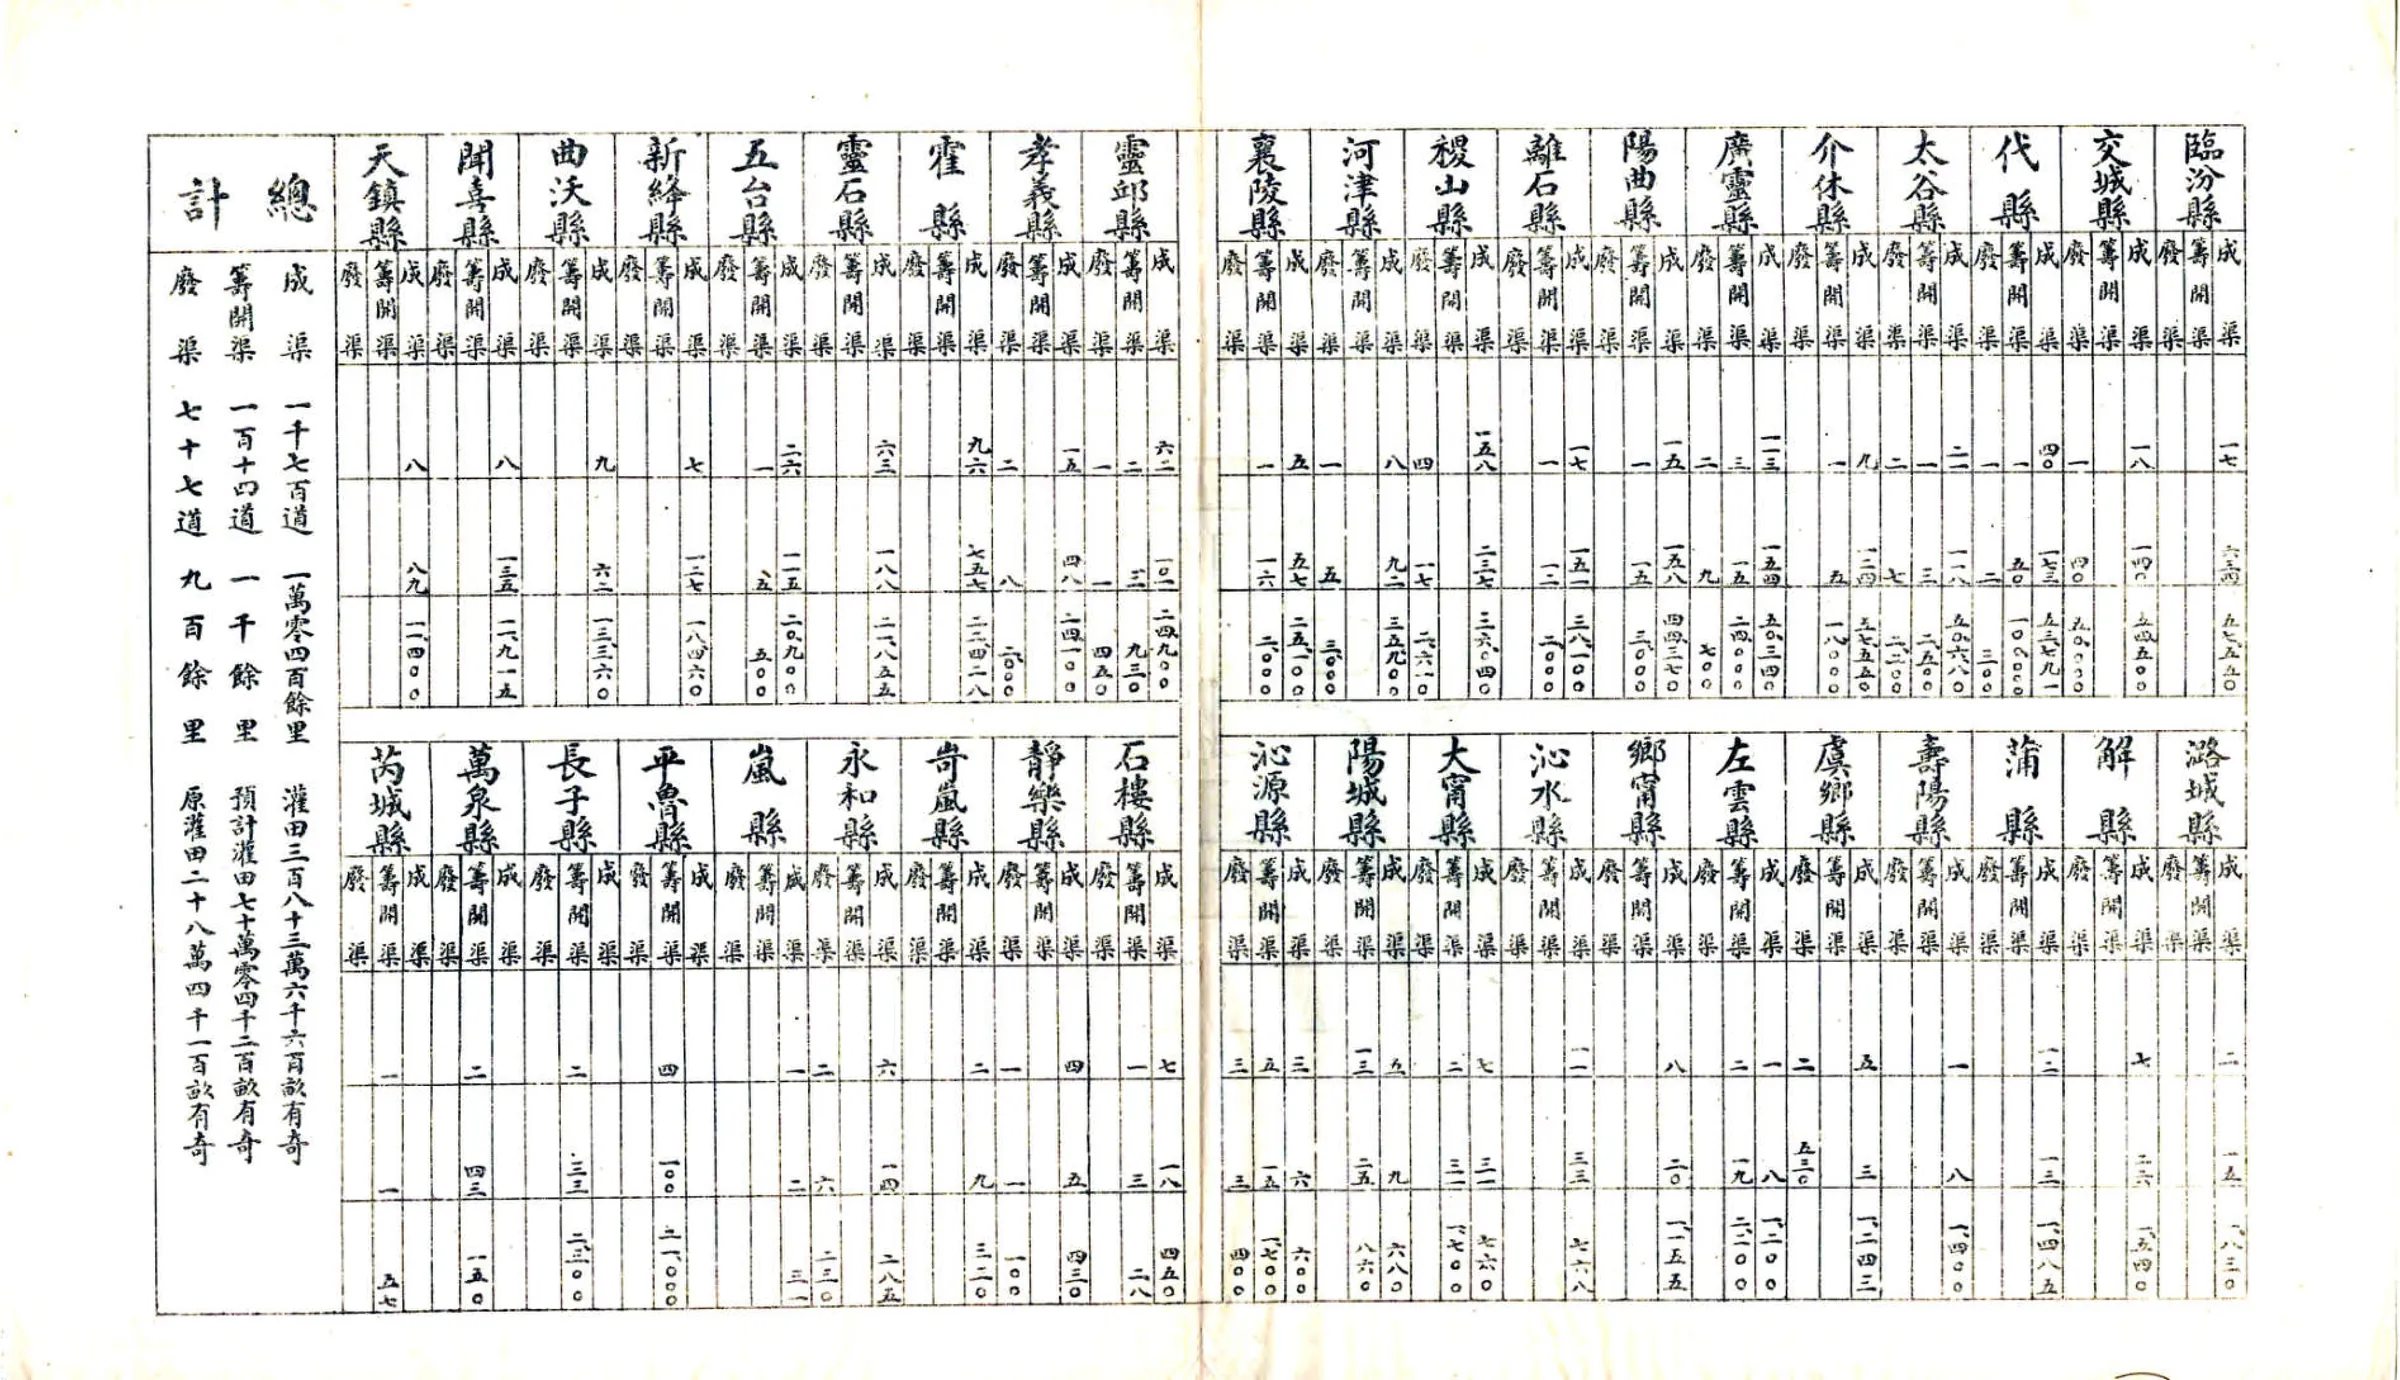 臨汾縣
成渠 一七 六三四 五七、五五〇
籌開渠
廢渠
交城縣
成渠 一八 一四〇 五四、五〇〇
籌開渠
廢渠 一 四〇 五〇、〇〇〇
代縣
成渠 四〇 一七三 五三、七九一
籌開渠 一 五〇 一〇、〇〇〇
廢渠 一 二 三〇〇
太谷縣
成渠 二一 一一八 五〇、六八〇
籌開渠 一 三 二、五〇〇
廢渠 二 七 二、二〇〇
介休縣
成渠 九 一二四 五七、五五〇
籌開渠 一 五 一八、〇〇〇
廢渠
廣靈縣
成渠 一一三 一五四 五〇、三四〇
籌開渠 三 一五 二四、〇〇〇
廢渠 二 九 七〇〇
陽曲縣
成渠 一五 一五八 四四、三七〇
籌開渠 一 一五 三、〇〇〇
廢渠
離石縣
成渠 一七 一五一 三八、一〇〇
籌開渠 一 一二 二、〇〇〇
廢渠
稷山縣
成渠 一五八 二三七 三六、〇四〇
籌開渠
廢渠 四 一七 二、六一〇
河津縣
成渠 八 九二 三五、九〇〇
籌開渠
廢渠 一 五 三、〇〇〇
襄陵縣
成渠 五 五七 二五、一〇〇
籌開渠 一 一六 二、〇〇〇
廢渠
潞城縣
成渠 二 一五 一、八三〇
籌開渠
廢渠
解縣
成渠 七 二六 一、五四〇
籌開渠
廢渠
蒲縣
成渠 一二 一三 一、四八五
籌開渠
廢渠
壽陽縣
成渠 一 八 一、四〇〇
籌開渠
廢渠
虞鄉縣
成渠 五 三 一、二四三
籌開渠
廢渠 二 五三〇
左雲縣
成渠 一 八 一、二〇〇
籌開渠 二 一九 二、二〇〇
廢渠
鄉甯縣
成渠 八 二〇 一、一五五
籌開渠
廢渠
沁水縣
成渠 一一 三三 七六八
籌開渠
廢渠
大甯縣
成渠 七 三一 七六〇
籌開渠 二 三一 一、七〇〇
廢渠
陽城縣
成渠 五 九 六八〇
籌開渠 一三 二五 八六〇
廢渠
沁源縣
成渠 三 六 六〇〇
籌開渠 五 一五 一、七〇〇
廢渠 三 三 四〇〇
靈邱縣
成渠 六二 一〇一 二四、九〇〇
籌開渠 二 三 九三〇
廢渠 一 一 四五〇
孝義縣
成渠 一五 四八 二四、一〇〇
籌開渠
廢渠 二 八 二、〇〇〇
霍縣
成渠 九六 七五七 二二、四二八
籌開渠
廢渠
靈石縣
成渠 六三 一八八 二一、八五五
籌開渠
廢渠
五台縣
成渠 二六 一一五 二〇、九〇〇
籌開渠 一 五 五〇〇
廢渠
新絳縣
成渠 七 一二七 一八、四六〇
籌開渠
廢渠
曲沃縣
成渠 九 六二 一三、三六〇
籌開渠
廢渠
聞喜縣
成渠 八 一三五 一二、九一五
籌開渠
廢渠
天鎮縣
成渠 八 八九 一一、四〇〇
籌開渠
廢渠
石樓縣
成渠 七 一八 四五〇
籌開渠 一 三 二八
廢渠
靜樂縣
成渠 四 五 四三〇
籌開渠
廢渠 一 一 一〇〇
岢嵐縣
成渠 二 九 三二〇
籌開渠
廢渠
永和縣
成渠 六 一四 二八五
籌開渠
廢渠 二 六 二三〇
嵐縣
成渠 一 二 三一
籌開渠
廢渠
平魯縣
成渠
籌開渠 四 一〇〇 二一、〇〇〇
廢渠
長子縣
成渠
籌開渠 二 三三 二、三〇〇
廢渠
萬泉縣
成渠
籌開渠 二 四三 一五〇
廢渠
芮城縣
成渠
籌開渠 一 一 五七
廢渠
總計
成渠 一千七百道 一萬零四百餘里 灌田三百八十三萬六千六百畝有奇
籌開渠 一百十四道 一千餘里 預計灌田七十萬零四千二百畝有奇
廢渠 七十七道 九百餘里 原灌田二十八萬四千一百畝有奇